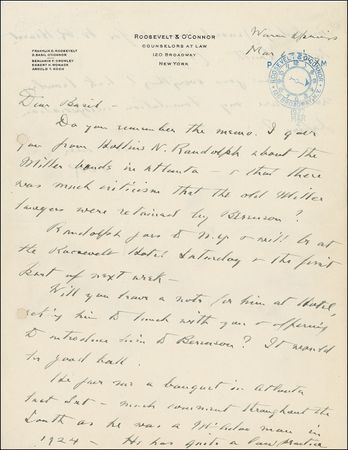 ROOSEVELT & O'CONNOR
COUNSELORS AT LAW
120 BROADWAY
NEW YORK
FRANKLIN D. ROOSEVELT
D. BASIL O'CONNOR
BENJAMIN F. CROWLEY
EGBERT H. WOMACK
ARNOLD T. KOCH
Warm Springs
Mar
Dear Basil -
Do you remember the memo. I gave
you from Hollins N. Randolph about the
Miller bonds in Atlanta - & that there
was much criticism that the old Miller
lawyers were retained by
Randolph goes to N.Y. & will be at
the Roosevelt Hotel Saturday & the first
part of next week -
Will you have a note for him at Hotel
asking him to lunch with you & offering
to introduce him to It would
be good ball.
He gave me a banquet in Atlanta
last Sat - much comment throughout the
South as he was a McAdoo man in
1924 - He has quite a law practice